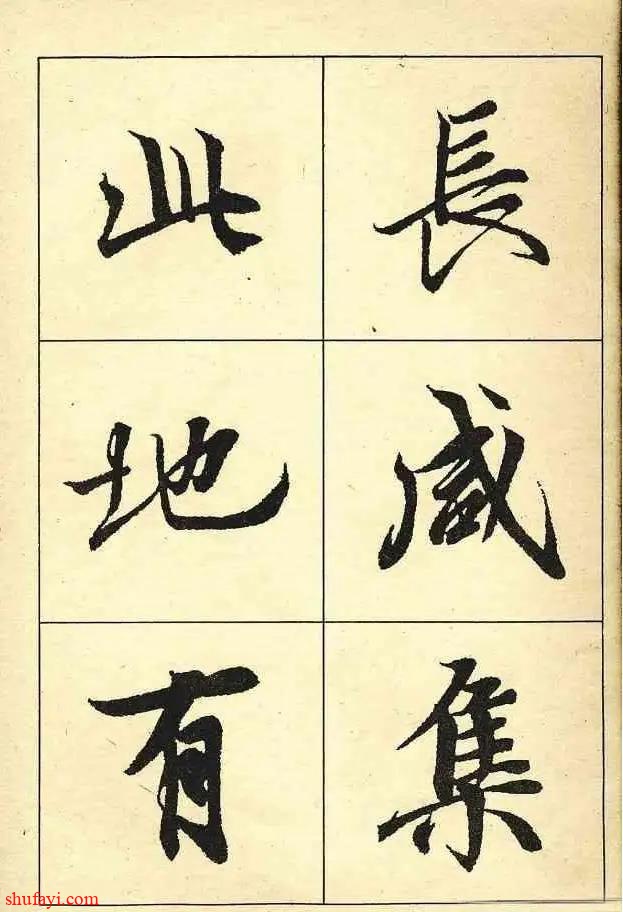 長咸集
此地有
shufayi.com